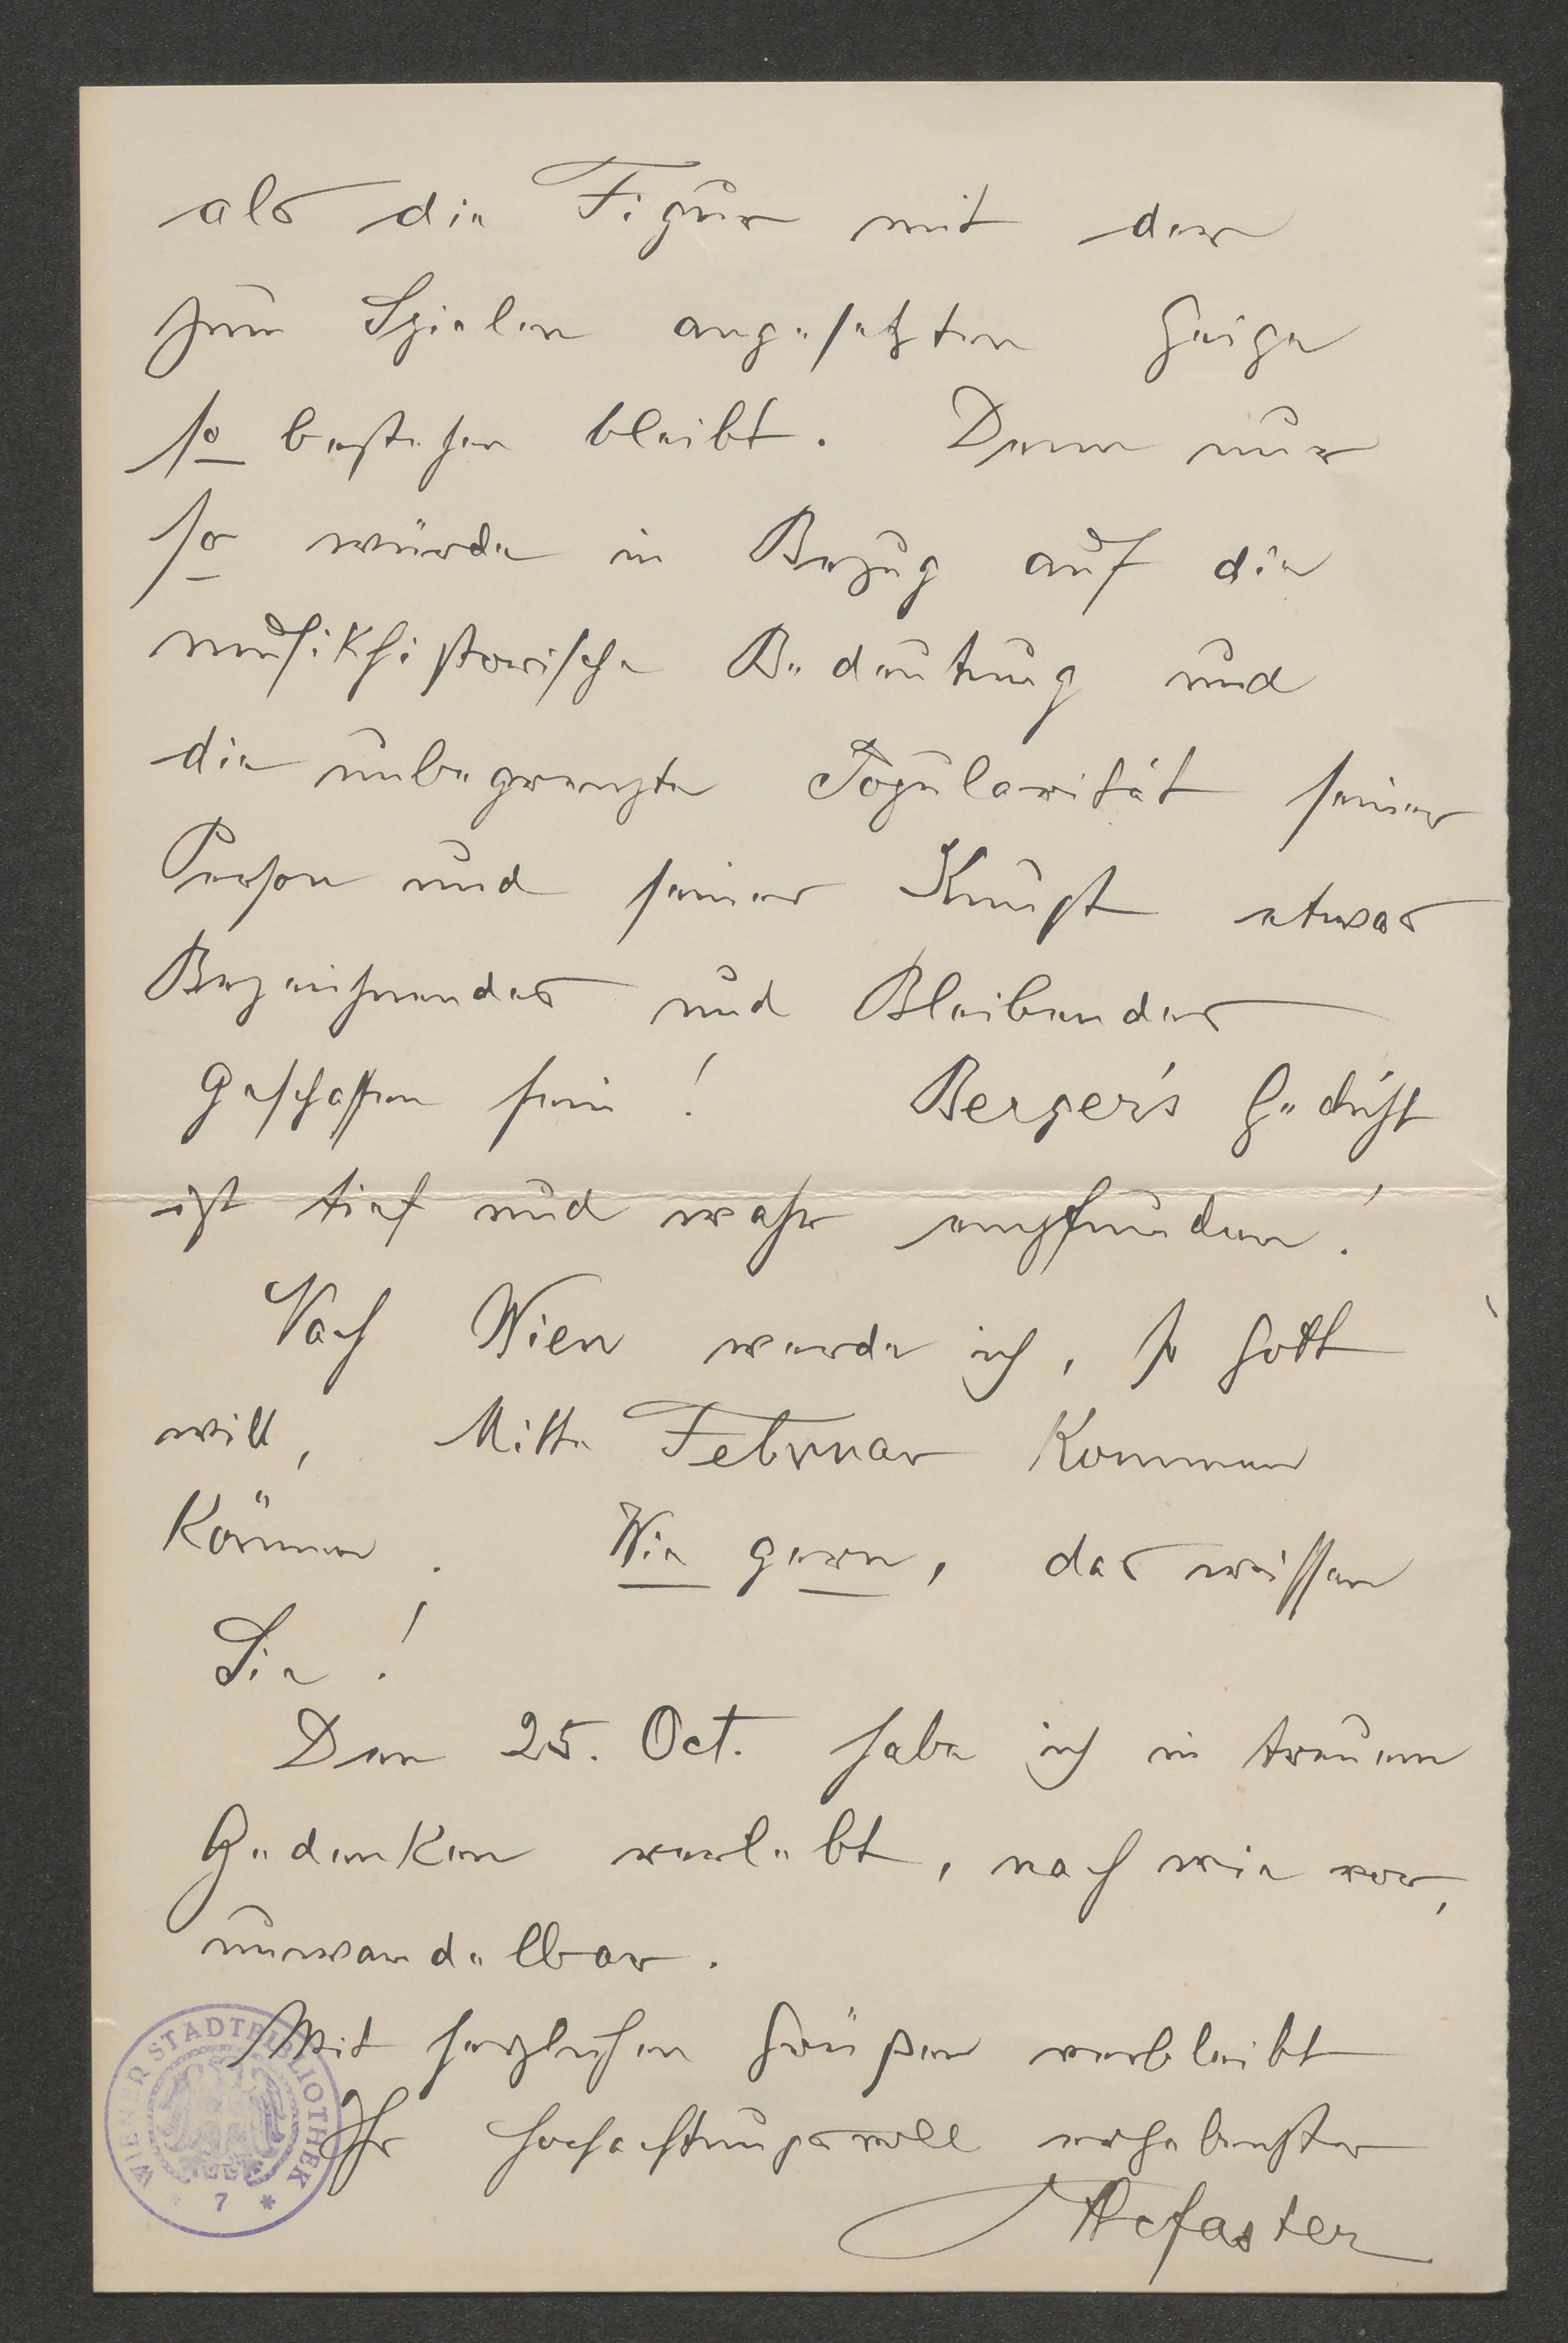 als die Figur mit der
zum Spielen angesetzten Geige
so bestehen bleibt. Denn nur
so würde in Bezug auf die
musikhistorische Bedeutung und
die unbegrenzte Popularität seiner
Person und seiner Kunst etwas
Bezeichnendes und Bleibendes
geschaffen sein! Berger's Gedicht
ist tief und wahr empfunden!
Nach Wien werde ich, so Gott
will, Mitte Februar kommen
können. Wie gern, das wissen
Sie!
Den 25. Oct. habe ich in treuem
Gedenken verlebt, nach wie vor,
unwandelbar.
Mit herzlichen Grüßen verbleibt
Ihr hochachtungsvoll ergebenster
WIENER STADTBIBLIOTHEK
* 7 *